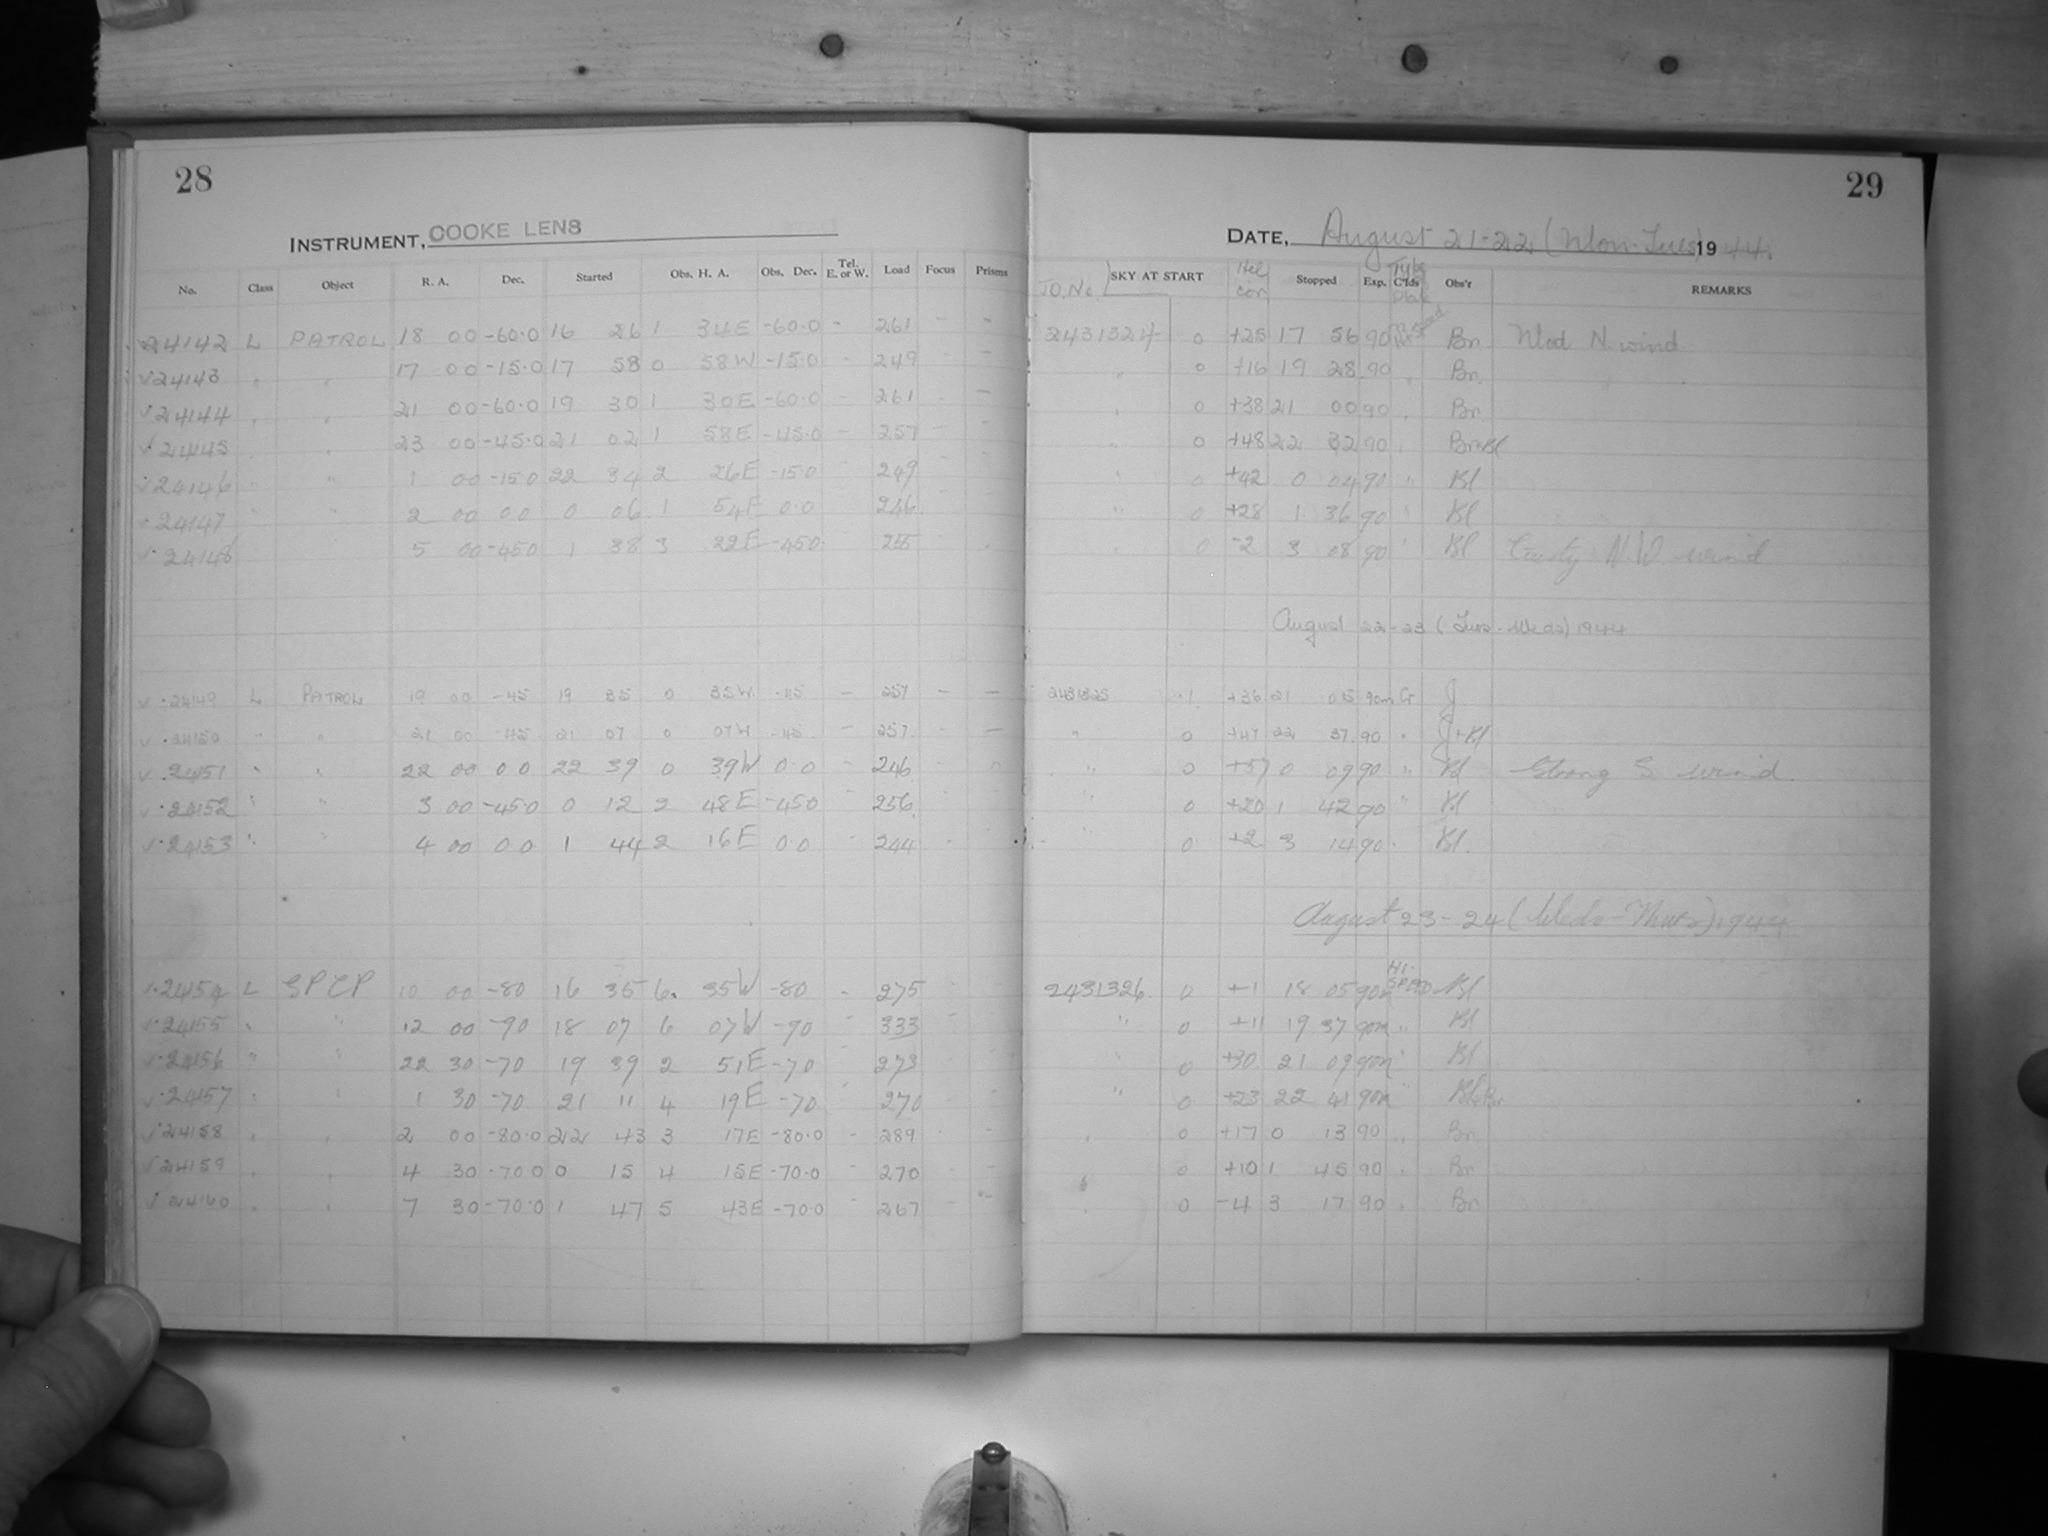 28
INSTRUMENT, COOKE LENS
No. Class Object R. A. Dec. Started Obs. H. A. Obs. Dec. Tel. E. or W. Load Focus Prisms
24142 L PATROL 18 00 -60.0 16 26 1 34E -60.0 - 261 - -
24143 " " 17 00 -15.0 17 58 0 58W -15.0 249
24144 " " 21 00 -60.0 19 30 1 30E -60.0 261 -
24145 " 23 00 -45.0 21 02 1 58E -45.0 - 257
24146 " " 1 00 -15.0 22 34 2 26E -15.0 249
24147 " " 2 00 0.0 0 06 1 54E 0.0 246
24148 5 00 -45.0 1 38 3 22E -45.0
24149 L PATROL 19 00 -45 19 35 0 35W -45 - 257 - -
24150 " " 21 00 -45 21 07 0 07W -45 - 257 -
24151 " " 22 00 0.0 22 39 0 39W 0.0 - 246
24152 " " 3 00 -45.0 0 12 2 48E -45.0 256
24153 " " 4 00 0.0 1 44 2 16E 0.0 244
24154 L SPCP 10 00 -80 16 35 6 35W -80 - 275
24155 " " 12 00 -90 18 07 6 07W -90 333
24156 " " 22 30 -70 19 39 2 51E -70 273
24157 " " 1 30 -70 21 11 4 19E -70 270
24158 " " 2 00 -80.0 22 43 3 17E -80.0 - 289
24159 " " 4 30 -70.0 0 15 4 15E -70.0 270
24160 " " 7 30 -70.0 1 47 5 43E -70.0 267
29
DATE, August 21-22 (Mon-Tues) 1944.
J.D. No. SKY AT START Hel cor Stopped Exp. C'lds Obs'r REMARKS
2431324 0 +25 17 56 90 Br Mod N. wind
" 0 +16 19 28 90 Br
" 0 +38 21 00 90 " Br
" 0 +48 22 32 90 " Br+Bl
" 0 +42 0 04 90 " Bl
" 0 +28 1 36 90 " Bl
" 0 -2 3 08 90 " Bl N.W. wind
August 22-23 (Tues-Weds) 1944
2431325 1 +36 21 05 90m Cr J
" 0 +47 22 37 90 " J+Bl
" 0 +57 0 09 90 " Bl Strong S wind.
" 0 +20 1 42 90 " Bl
0 +2 3 14 90 " Bl.
August 23-24 (Weds-Thurs) 1944
2431326 0 +1 18 05 90m HI-SPEED Bl
" 0 +11 19 37 90m " Bl
" 0 +30 21 09 90m " Bl
" 0 +23 22 41 90m " Bl+Br
" 0 +17 0 13 90 " Br
" 0 +10 1 45 90 " Br
" 0 -4 3 17 90 " Br